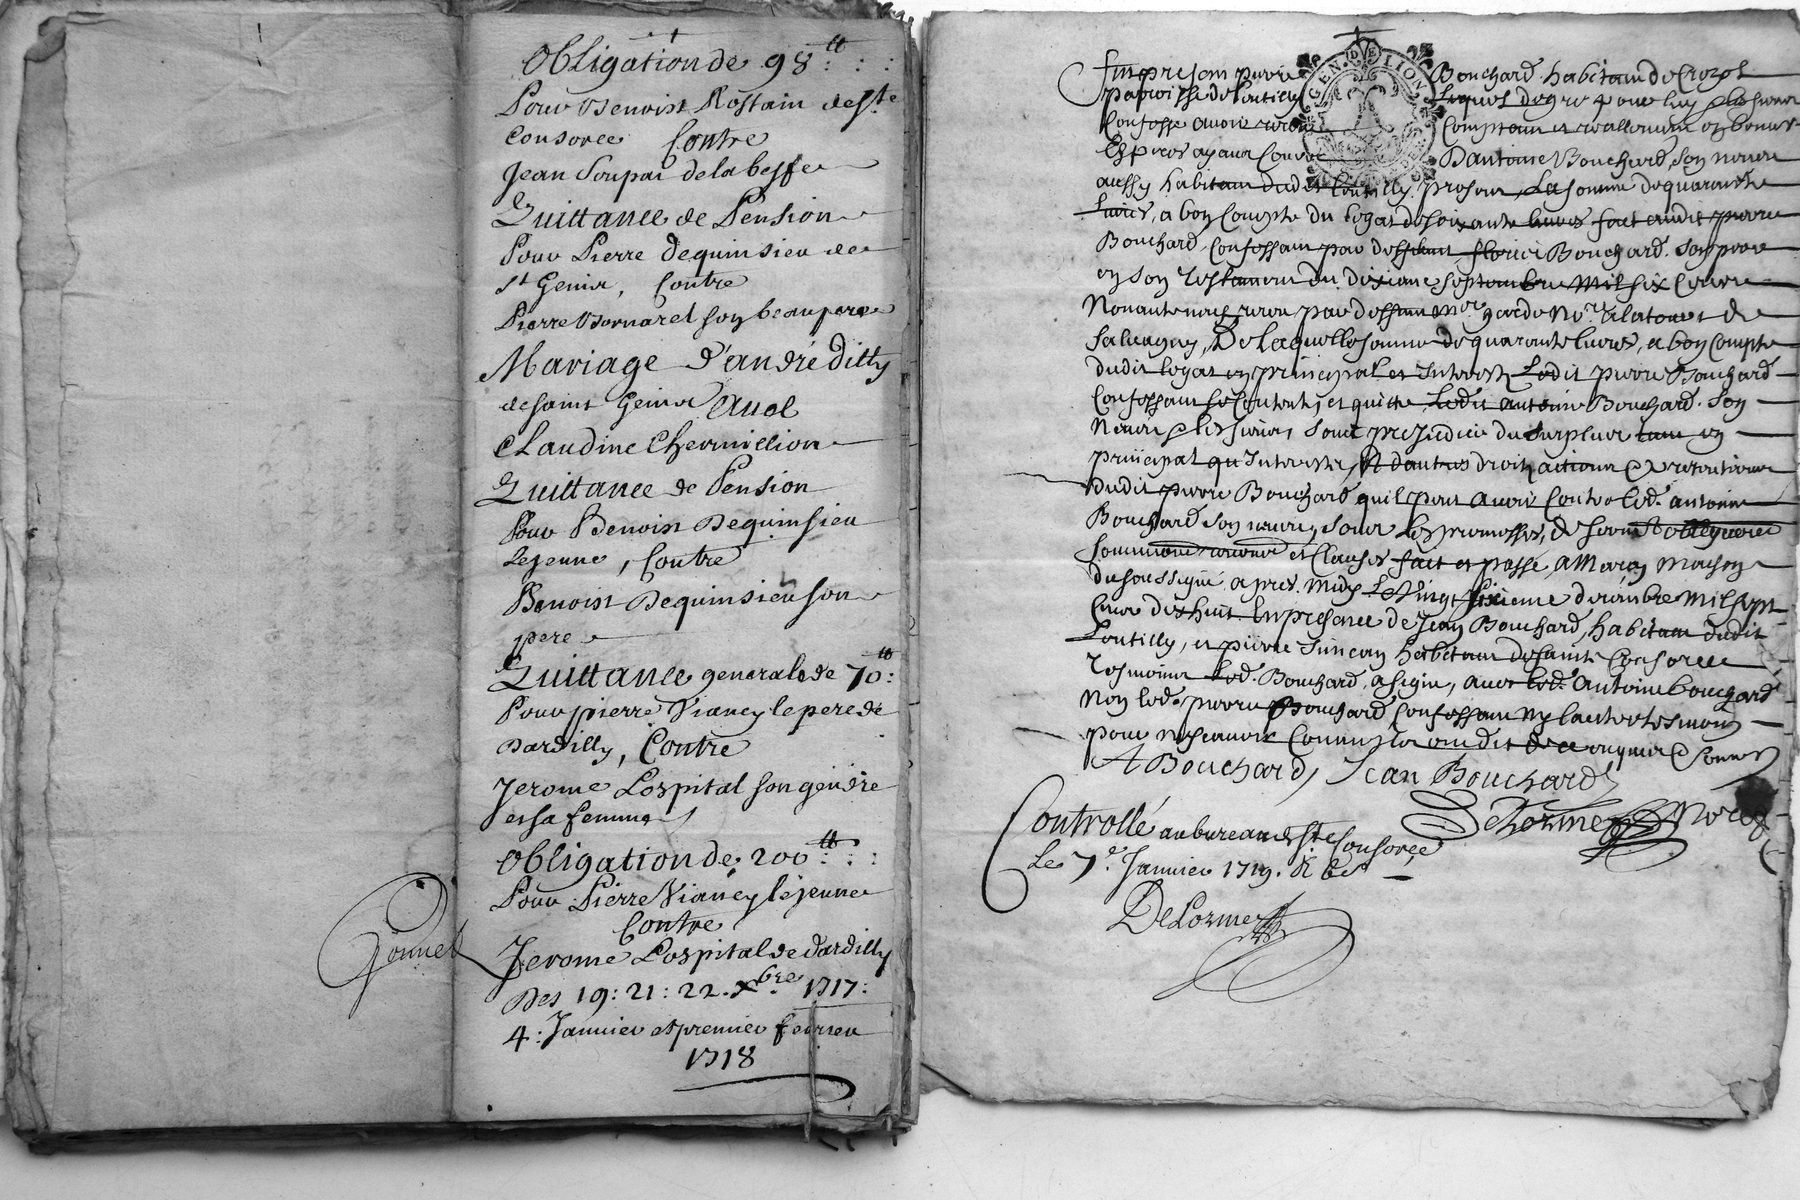 Obligation de 98 ₶
Pour Benoist Rostain de Ste
Consorce Contre
Jean Poupar de la besse
Quittance de Pension
Pour Pierre Dequinsieu de
St Genis, Contre
Pierre Bornarel son beaupere
Mariage d'andré Dilly
de saint Genis Avec
Claudine Chermillion
Quittance de Pension
Pour Benoist Dequinsieu
Lejeune, Contre
Benoist Dequinsieu son
pere
Quittance generale de 70 ₶
Pour pierre Vianey le pere de
Dardilly, Contre
Jerome Lospital son gendre
et sa femme
Obligation de 200 ₶
Pour Pierre Vianey lejeune
Contre
Jerome Lospital de dardilly
Des 19: 21: 22. xbre 1717:
4: Janvier et premier fevrier
1718
GEN. DE LION
Bouchard habitan de
paroisse de Lentilly
Confesse avoir
Especes ayant Cours D'antoine Bouchard, son neveu
aussy habitan dudit Lentilly, present, La somme de quarante
Livres, a bon Compte du legat de soixante livres fait audit pierre
Bouchard Confessant par deffunt Bouchard son pere
en son testament du dixiesme septembre Mil six Cent
Nonante neuf receu par deffunt Me Not.re a la tour de
salvagny, De laquelle somme de quarante livres, a bon Compte
dudit legat en principal et Interests Ledit pierre Bouchard
Confessant se Contente, et quitte Ledit antoine Bouchard son
Neveu et les siens, sans prejudice du surplus tant en
principal qu'Interests, et d'autres droits actions et pretentions
dudit pierre Bouchard qu'il peut avoir Contre led. antoine
Bouchard son neveu, sous Les promesses, de serment
soumissions et Clauses fait et passé, a Marcy Maison
du soussigné apres midy Le Vingt sixieme decembre Mil sept
Cent dix huit En presence de Jean Bouchard, habitan dudit
Lentilly, et pierre habitan de sainte Consorce
tesmoins Led. Bouchard, a signé, avec led. antoine bouchard
Non led. pierre Bouchard Confessant
pour ne scavoir
A Bouchard Jean Bouchard
DeLorme No.re
Controllé au bureau de Ste Consorce
Le 7e Janvier 1719.
DeLorme